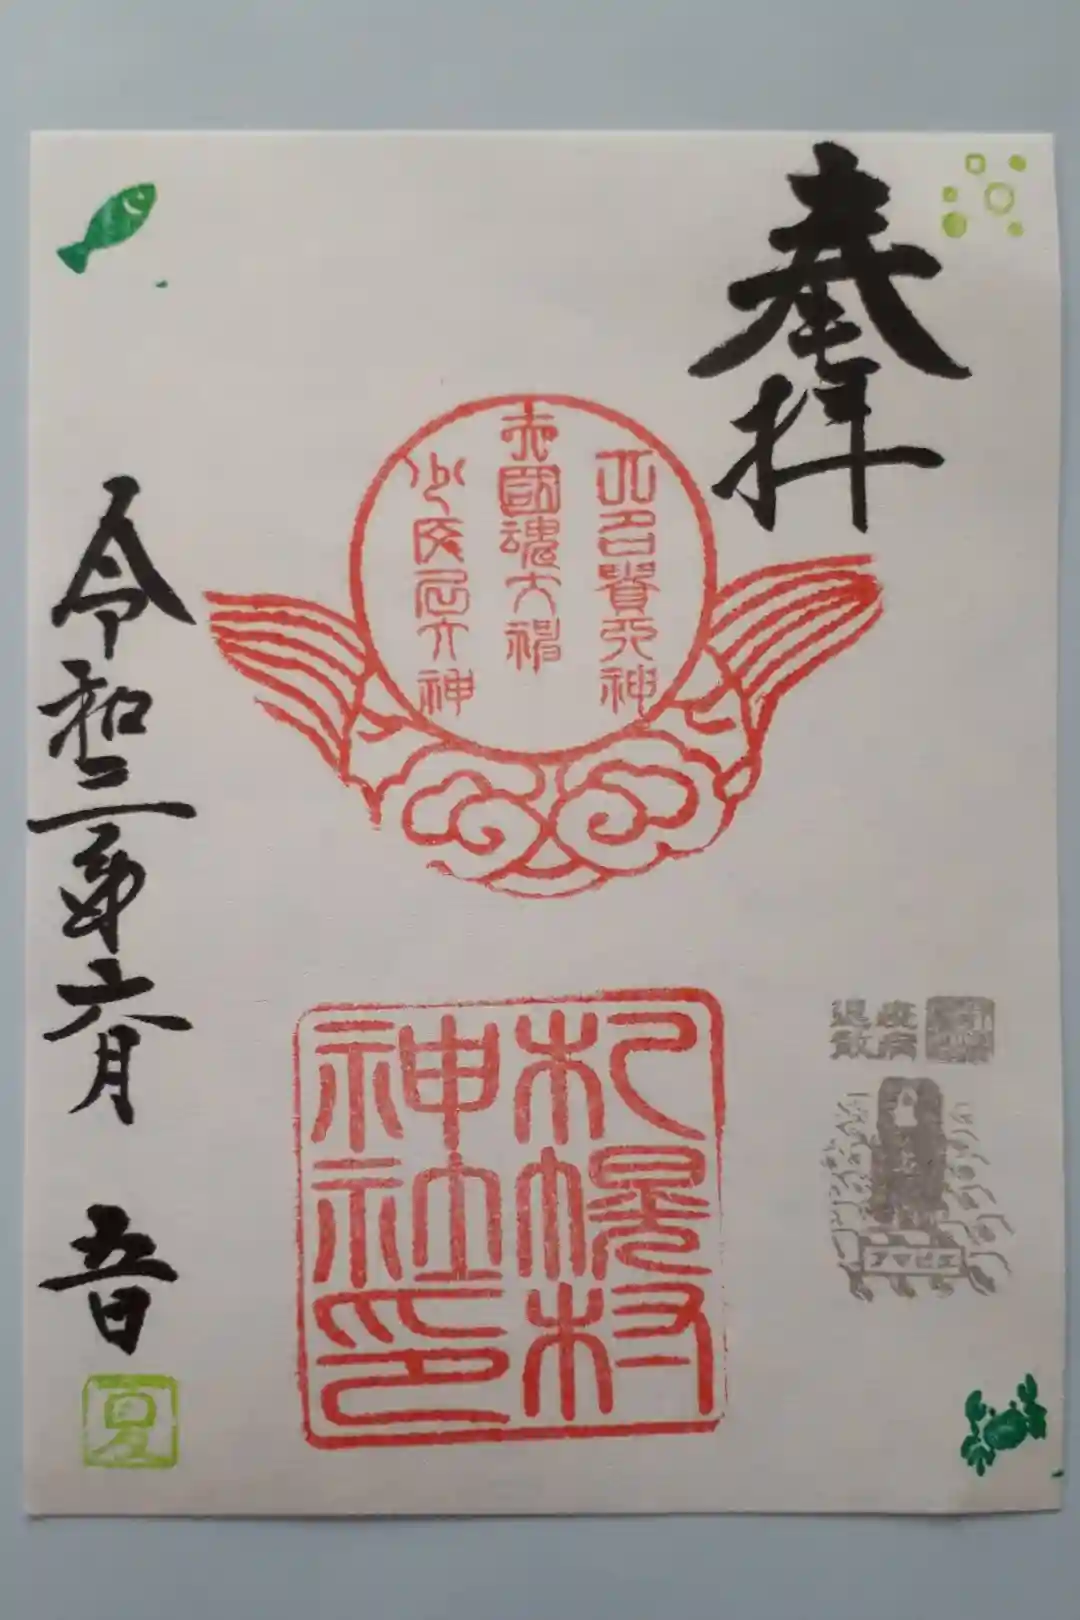 奉拝
大名貴大神
大國魂大神
札幌村
神社印
疫病
退散
アマビエ
令和二年六月 五日
夏